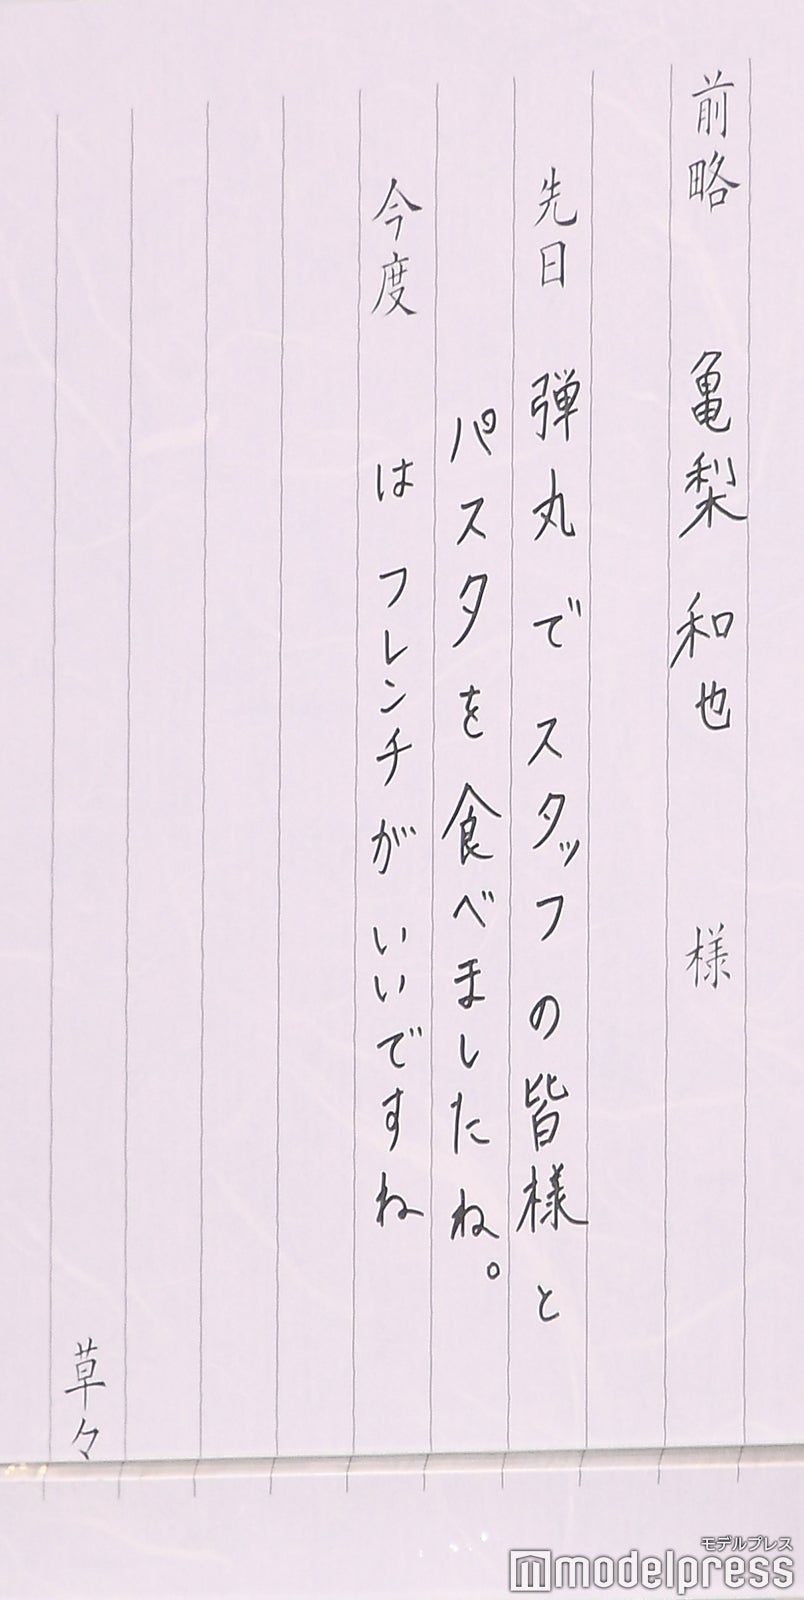 前略 亀梨和也 様
先日 弾丸でスタッフの皆様と
パスタを食べましたね。
今度 はフレンチがいいですね
草々
モデルプレス
modelpress